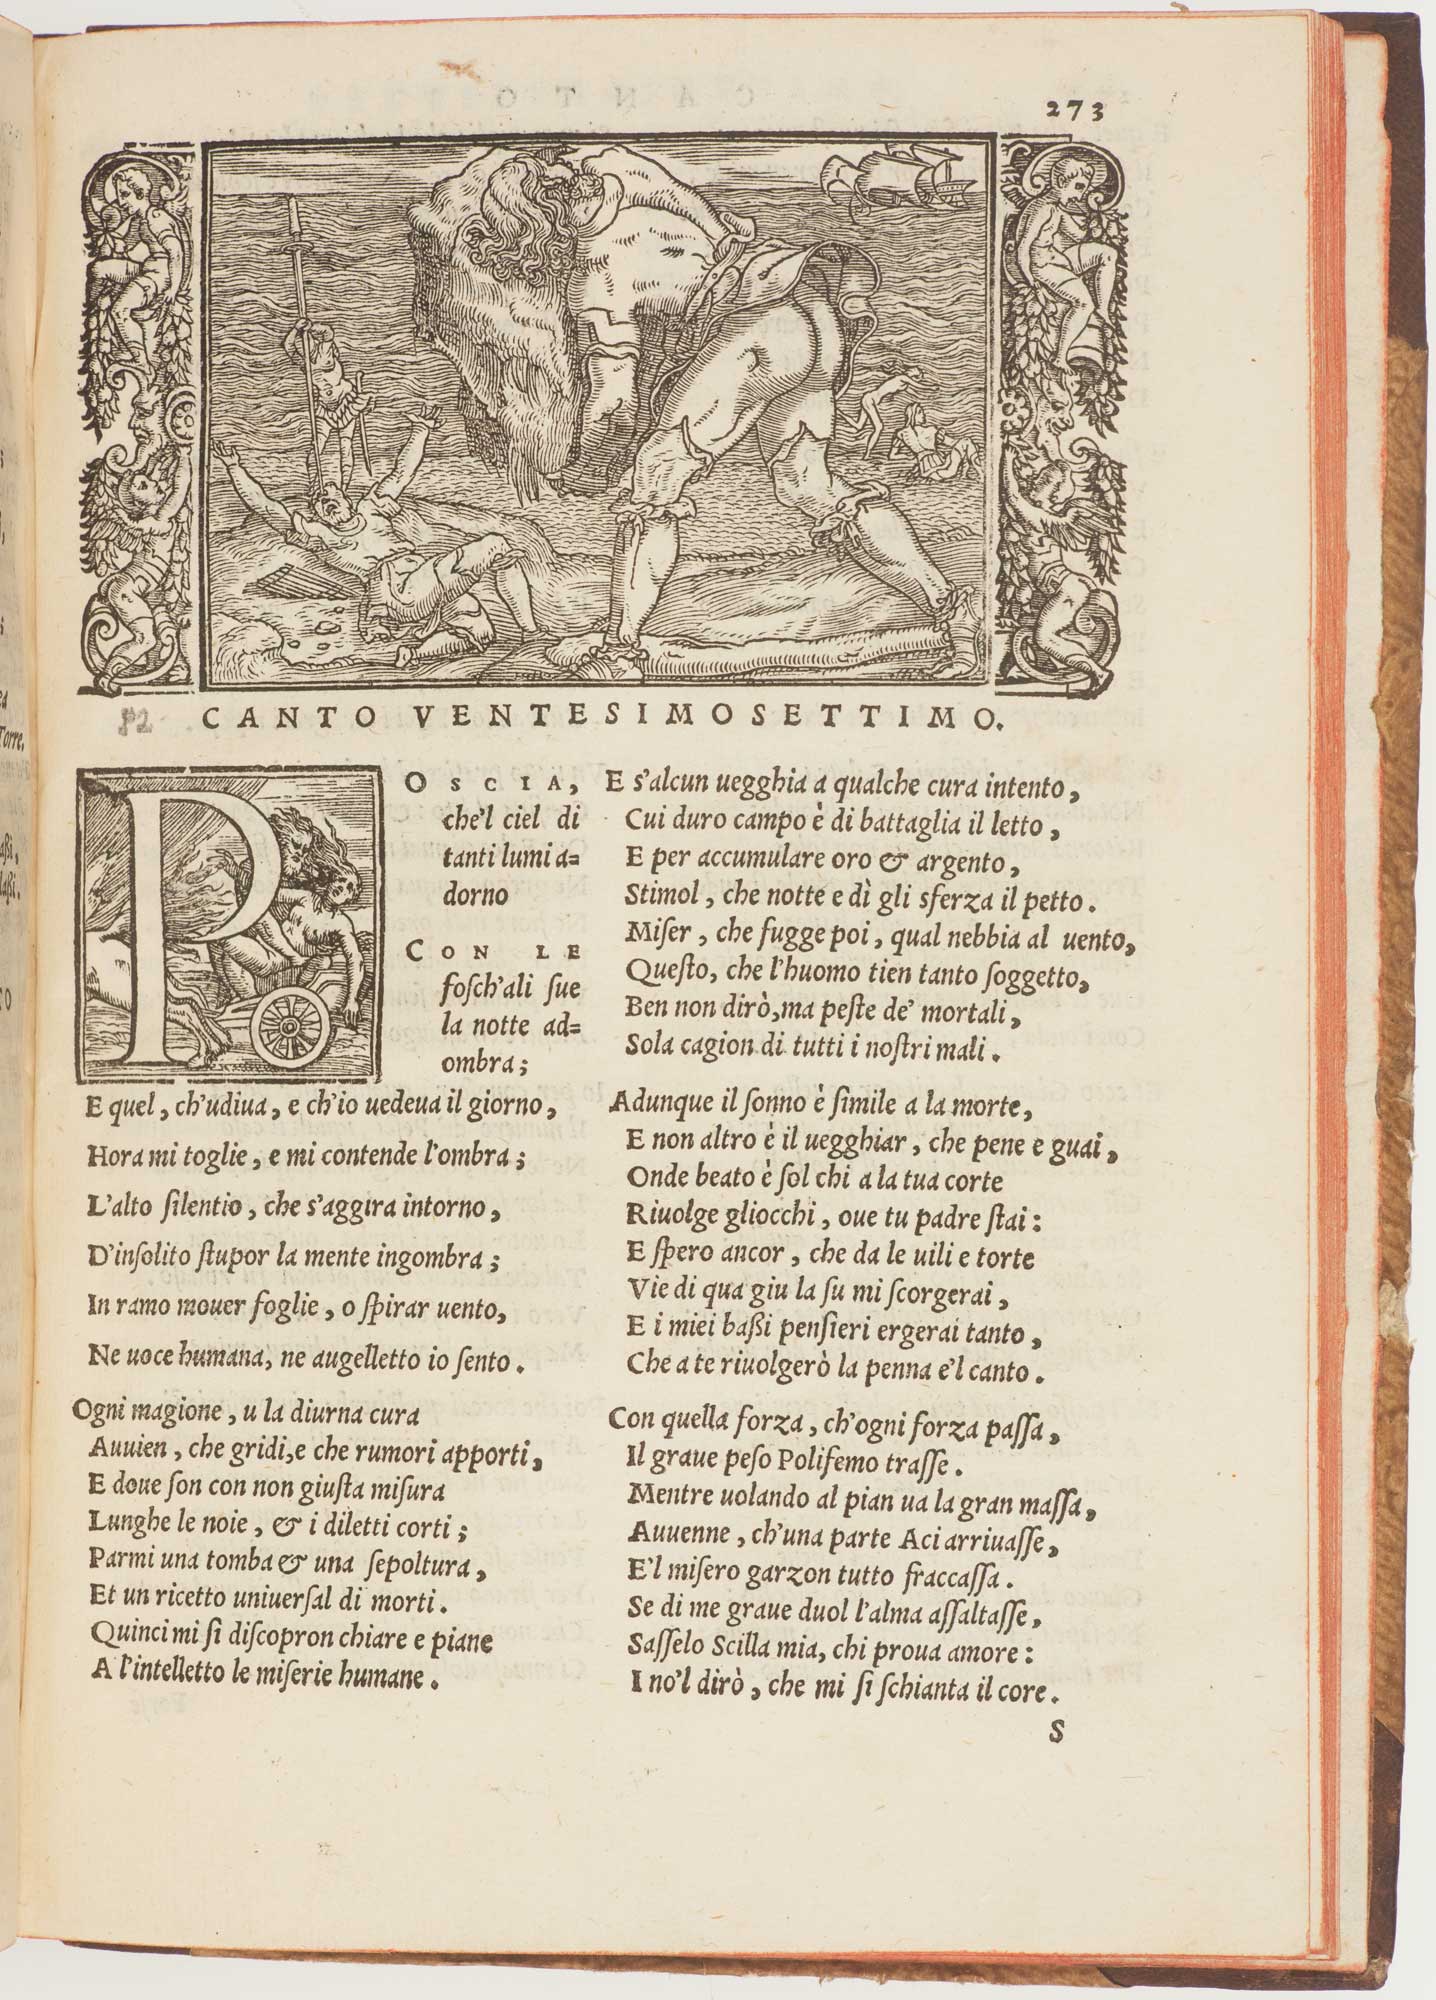 273
CANTO VENTESIMOSETTIMO.
POSCIA,
che'l ciel di
tanti lumi a-
dorno
CON LE
fosch'ali sue
la notte ad-
ombra;
E quel, ch'udiua, e ch'io uedeua il giorno,
Hora mi toglie, e mi contende l'ombra;
L'alto silentio, che s'aggira intorno,
D'insolito stupor la mente ingombra;
In ramo mouer foglie, o spirar uento,
Ne uoce humana, ne augelletto io sento.
Ogni magione, u la diurna cura
Auuien, che gridi, e che rumori apporti,
E doue son con non giusta misura
Lunghe le noie, & i diletti corti;
Parmi una tomba & una sepoltura,
Et un ricetto uniuersal di morti.
Quinci mi si discopron chiare e piane
A l'intelletto le miserie humane.
E s'alcun uegghia a qualche cura intento,
Cui duro campo è di battaglia il letto,
E per accumulare oro & argento,
Stimol, che notte e dì gli sferza il petto.
Miser, che fugge poi, qual nebbia al uento,
Questo, che l'huomo tien tanto soggetto,
Ben non dirò, ma peste de' mortali,
Sola cagion di tutti i nostri mali.
Adunque il sonno è simile a la morte,
E non altro è il uegghiar, che pene e guai,
Onde beato è sol chi a la tua corte
Riuolge gliocchi, oue tu padre stai:
E spero ancor, che da le uili e torte
Vie di qua giu la su mi scorgerai,
E i miei bassi pensieri ergerai tanto,
Che a te riuolgerò la penna e'l canto.
Con quella forza, ch'ogni forza passa,
Il graue peso Polifemo trasse.
Mentre uolando al pian ua la gran massa,
Auuenne, ch'una parte Aci arriuasse,
E'l misero garzon tutto fraccassa.
Se di me graue duol l'alma assaltasse,
Sasselo Scilla mia, chi proua amore:
I no'l dirò, che mi si schianta il core.
S